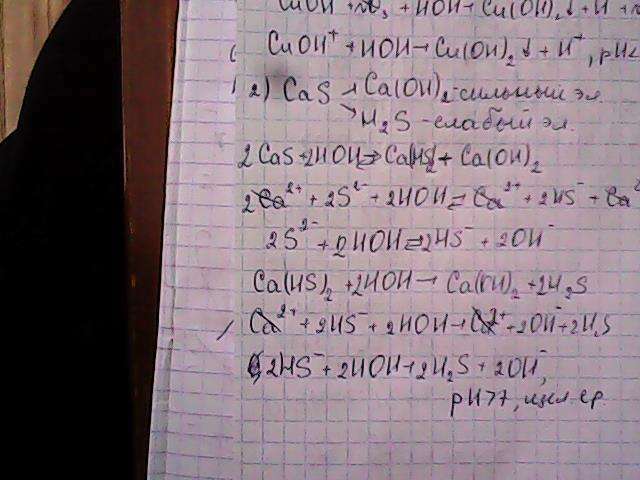 CuOH + NO₃ + HOH → Cu(OH)₂↓ + H +
CuOH⁺ + HOH → Cu(OH)₂↓ + H⁺, pH<
2) CaS → Ca(OH)₂ - сильный эл.
→ H₂S - слабый эл.
2CaS + 2HOH ⇌ Ca(HS)₂ + Ca(OH)₂
2Ca²⁺ + 2S²⁻ + 2HOH ⇌ Ca²⁺ + 2HS⁻ + Ca²
2S²⁻ + 2HOH ⇌ 2HS⁻ + 2OH⁻
Ca(HS)₂ + 2HOH → Ca(OH)₂ + 2H₂S
Ca²⁺ + 2HS⁻ + 2HOH → Ca²⁺ + 2OH⁻ + 2H₂S
2HS⁻ + 2HOH → 2H₂S + 2OH⁻,
pH>7, щел. ср.